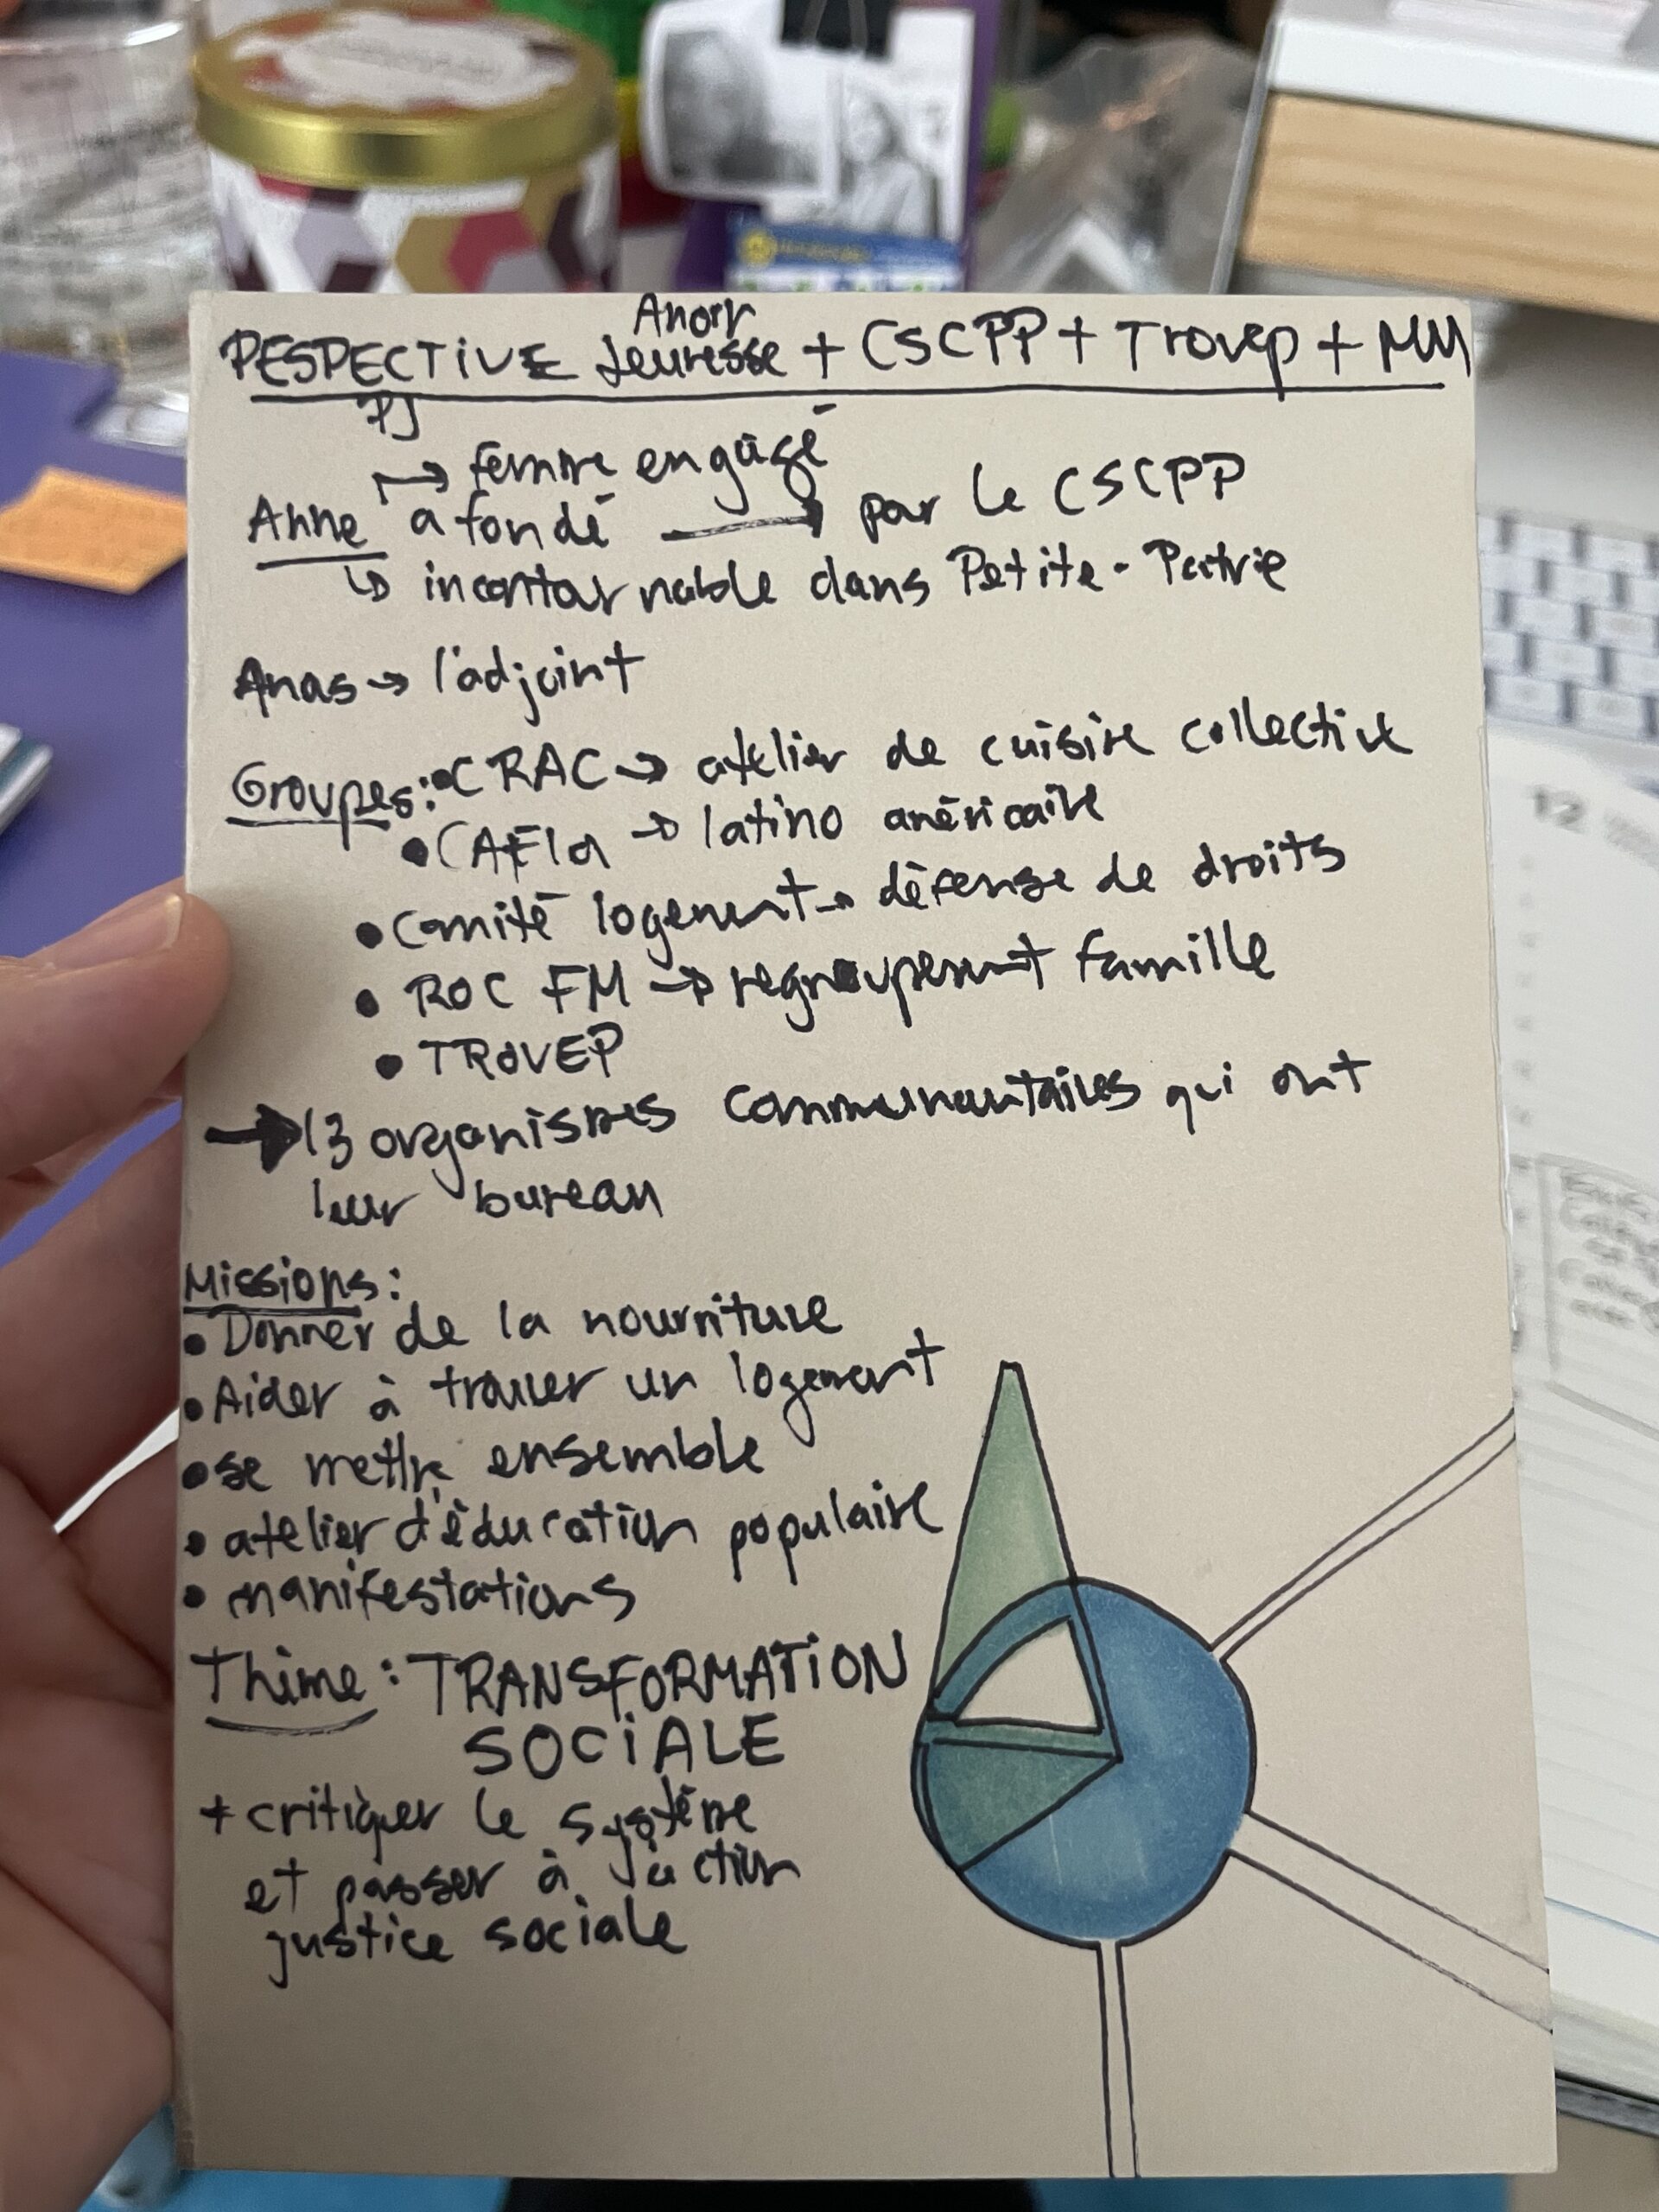 Anorr
PESPECTIVE Jeunesse + CSCPP + Trovep + MM
PJ
→ femme engagé
Anne a fondé → par le CSCPP
↳ incontournable dans Petite-Patrie
Anas → l'adjoint
Groupes: • CRAC → atelier de cuisine collective
• CAFLA → latino américaine
• Comité logement → défense de droits
• ROC FM → regroupement famille
• TROVEP
→ 13 organismes communautaires qui ont
leur bureau
Missions:
• Donner de la nourriture
• Aider à trouver un logement
• se mettre ensemble
• atelier d'éducation populaire
• manifestations
Thème: TRANSFORMATION
SOCIALE
+ critiquer le système
et passer à l'action
justice sociale
12